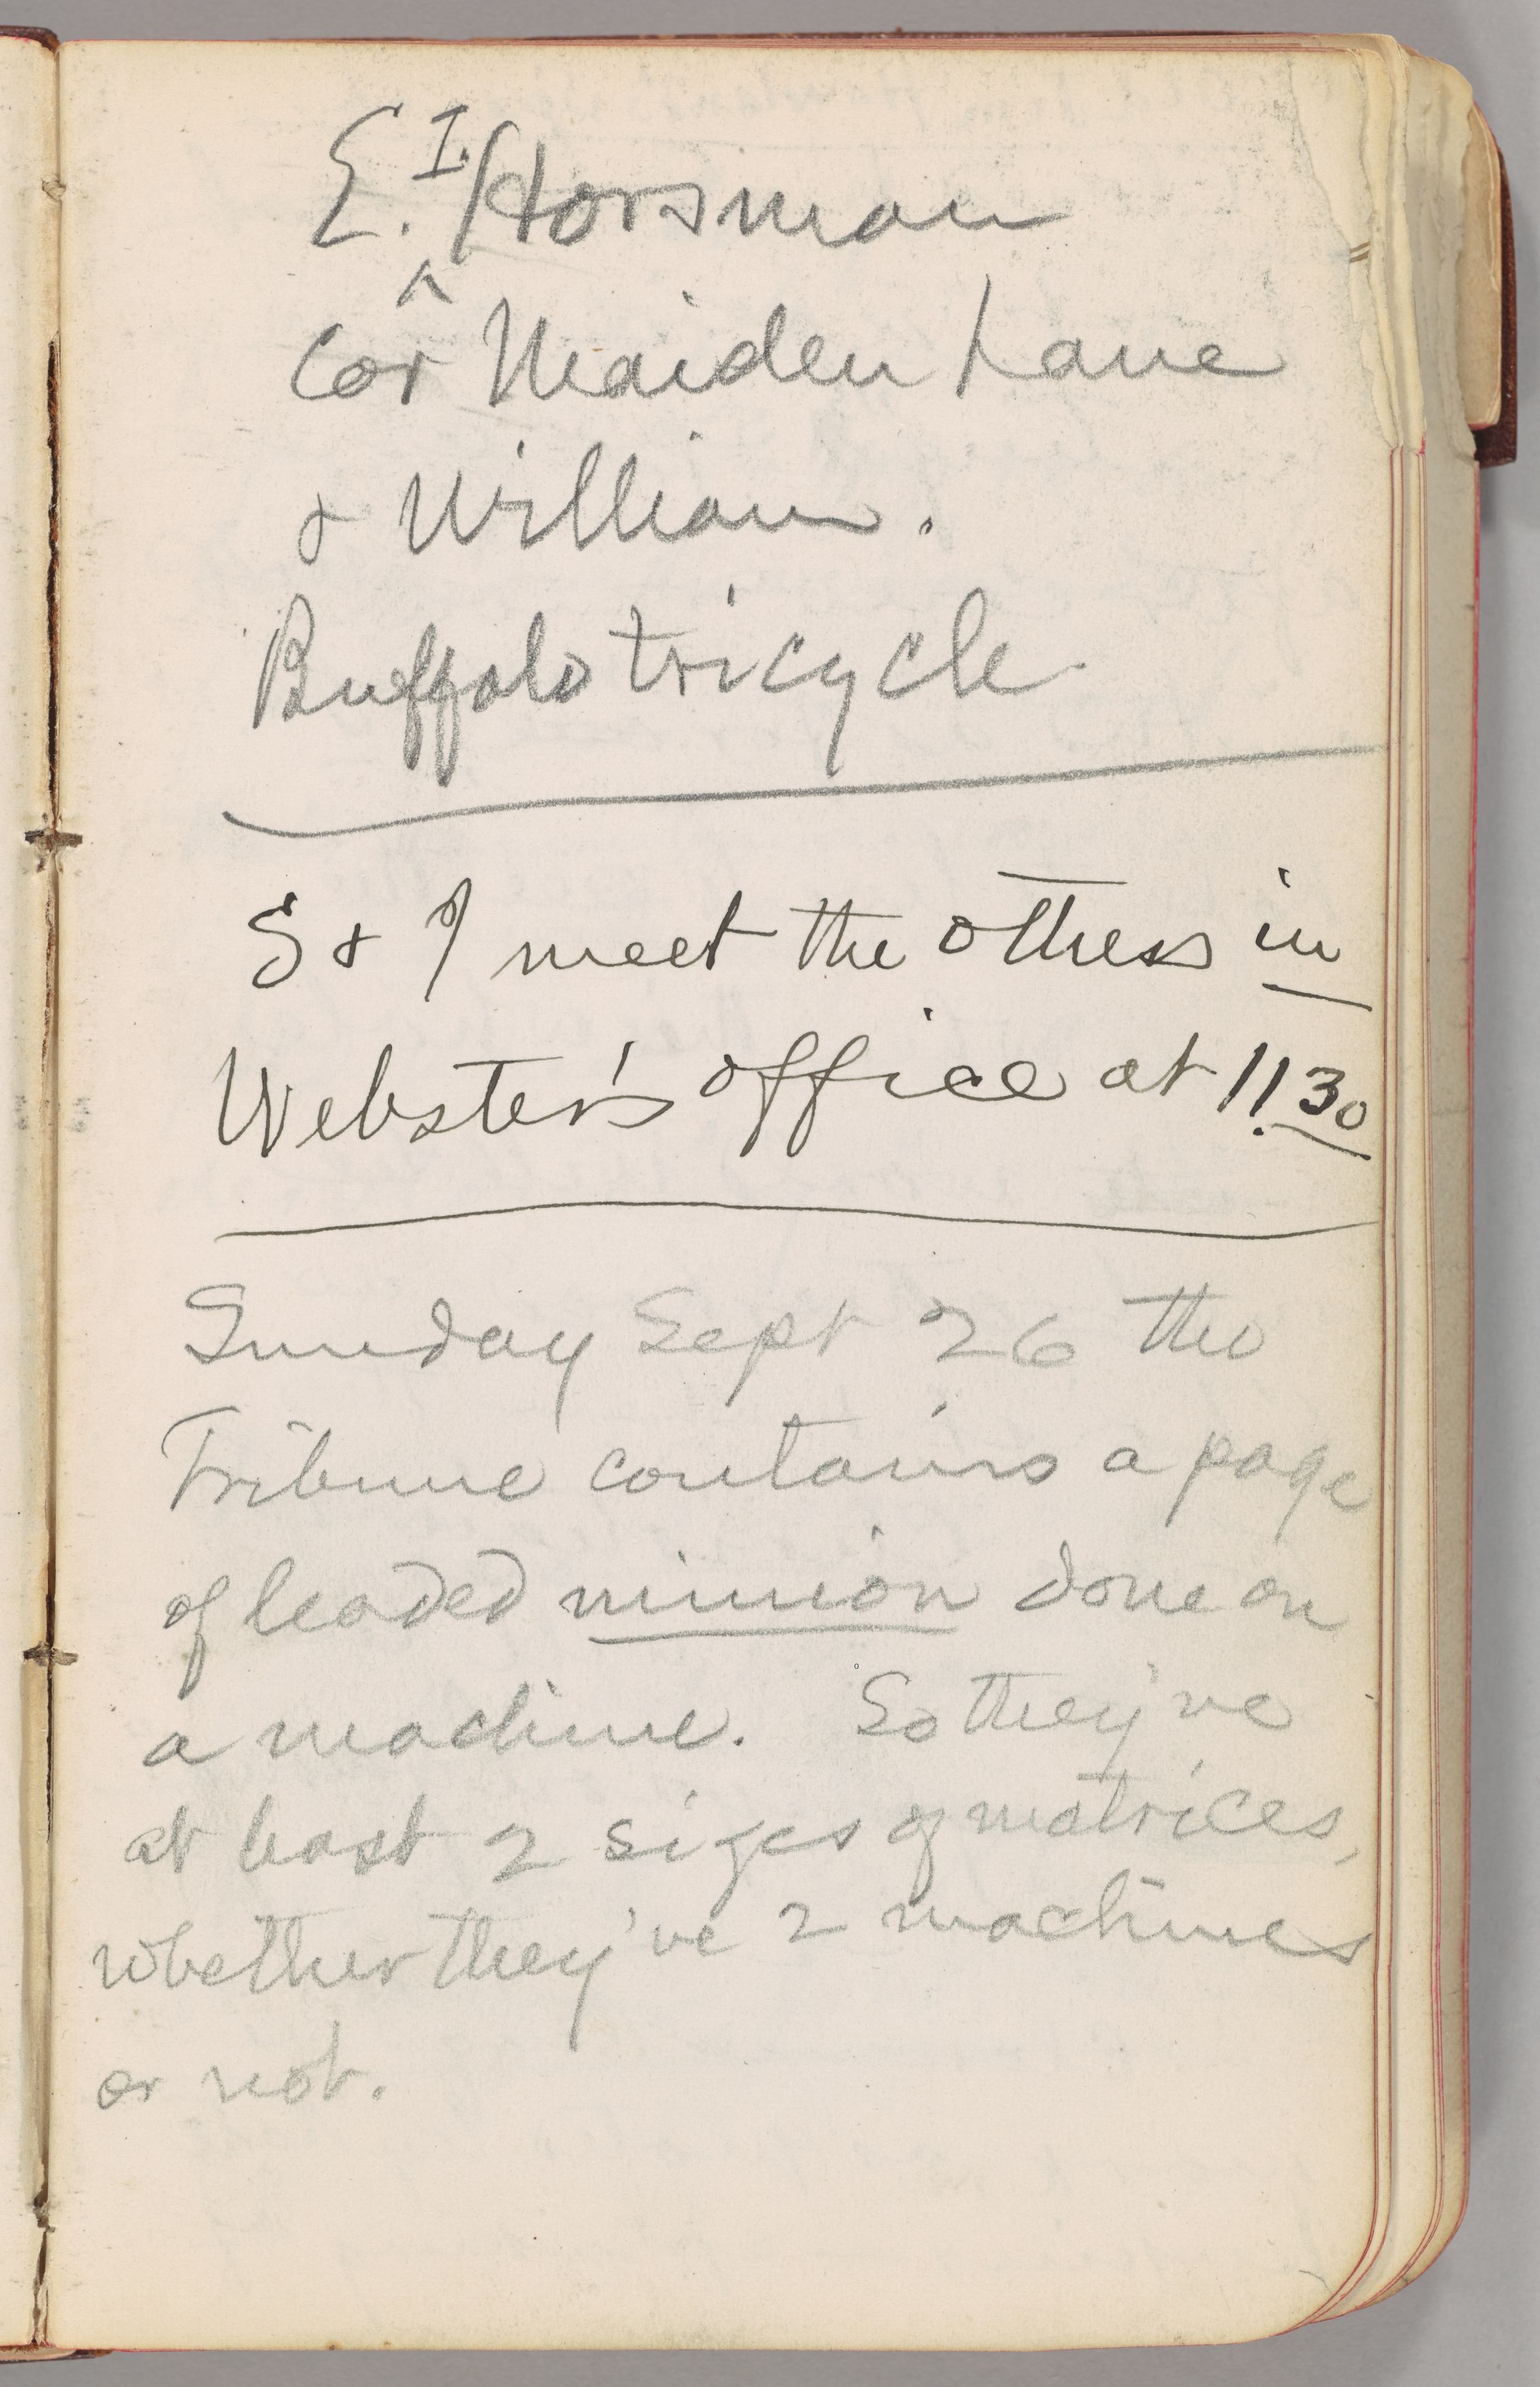 E. I. Horsman
cor Maiden Lane
& William.
Buffalo tricycle
S & I meet the others in
Webster's office at 11.30
Sunday Sept 26 the
Tribune contains a page
of leaded minion done on
a machine. So they've
at least 2 sizes of matrices,
whether they've 2 machines
or not.